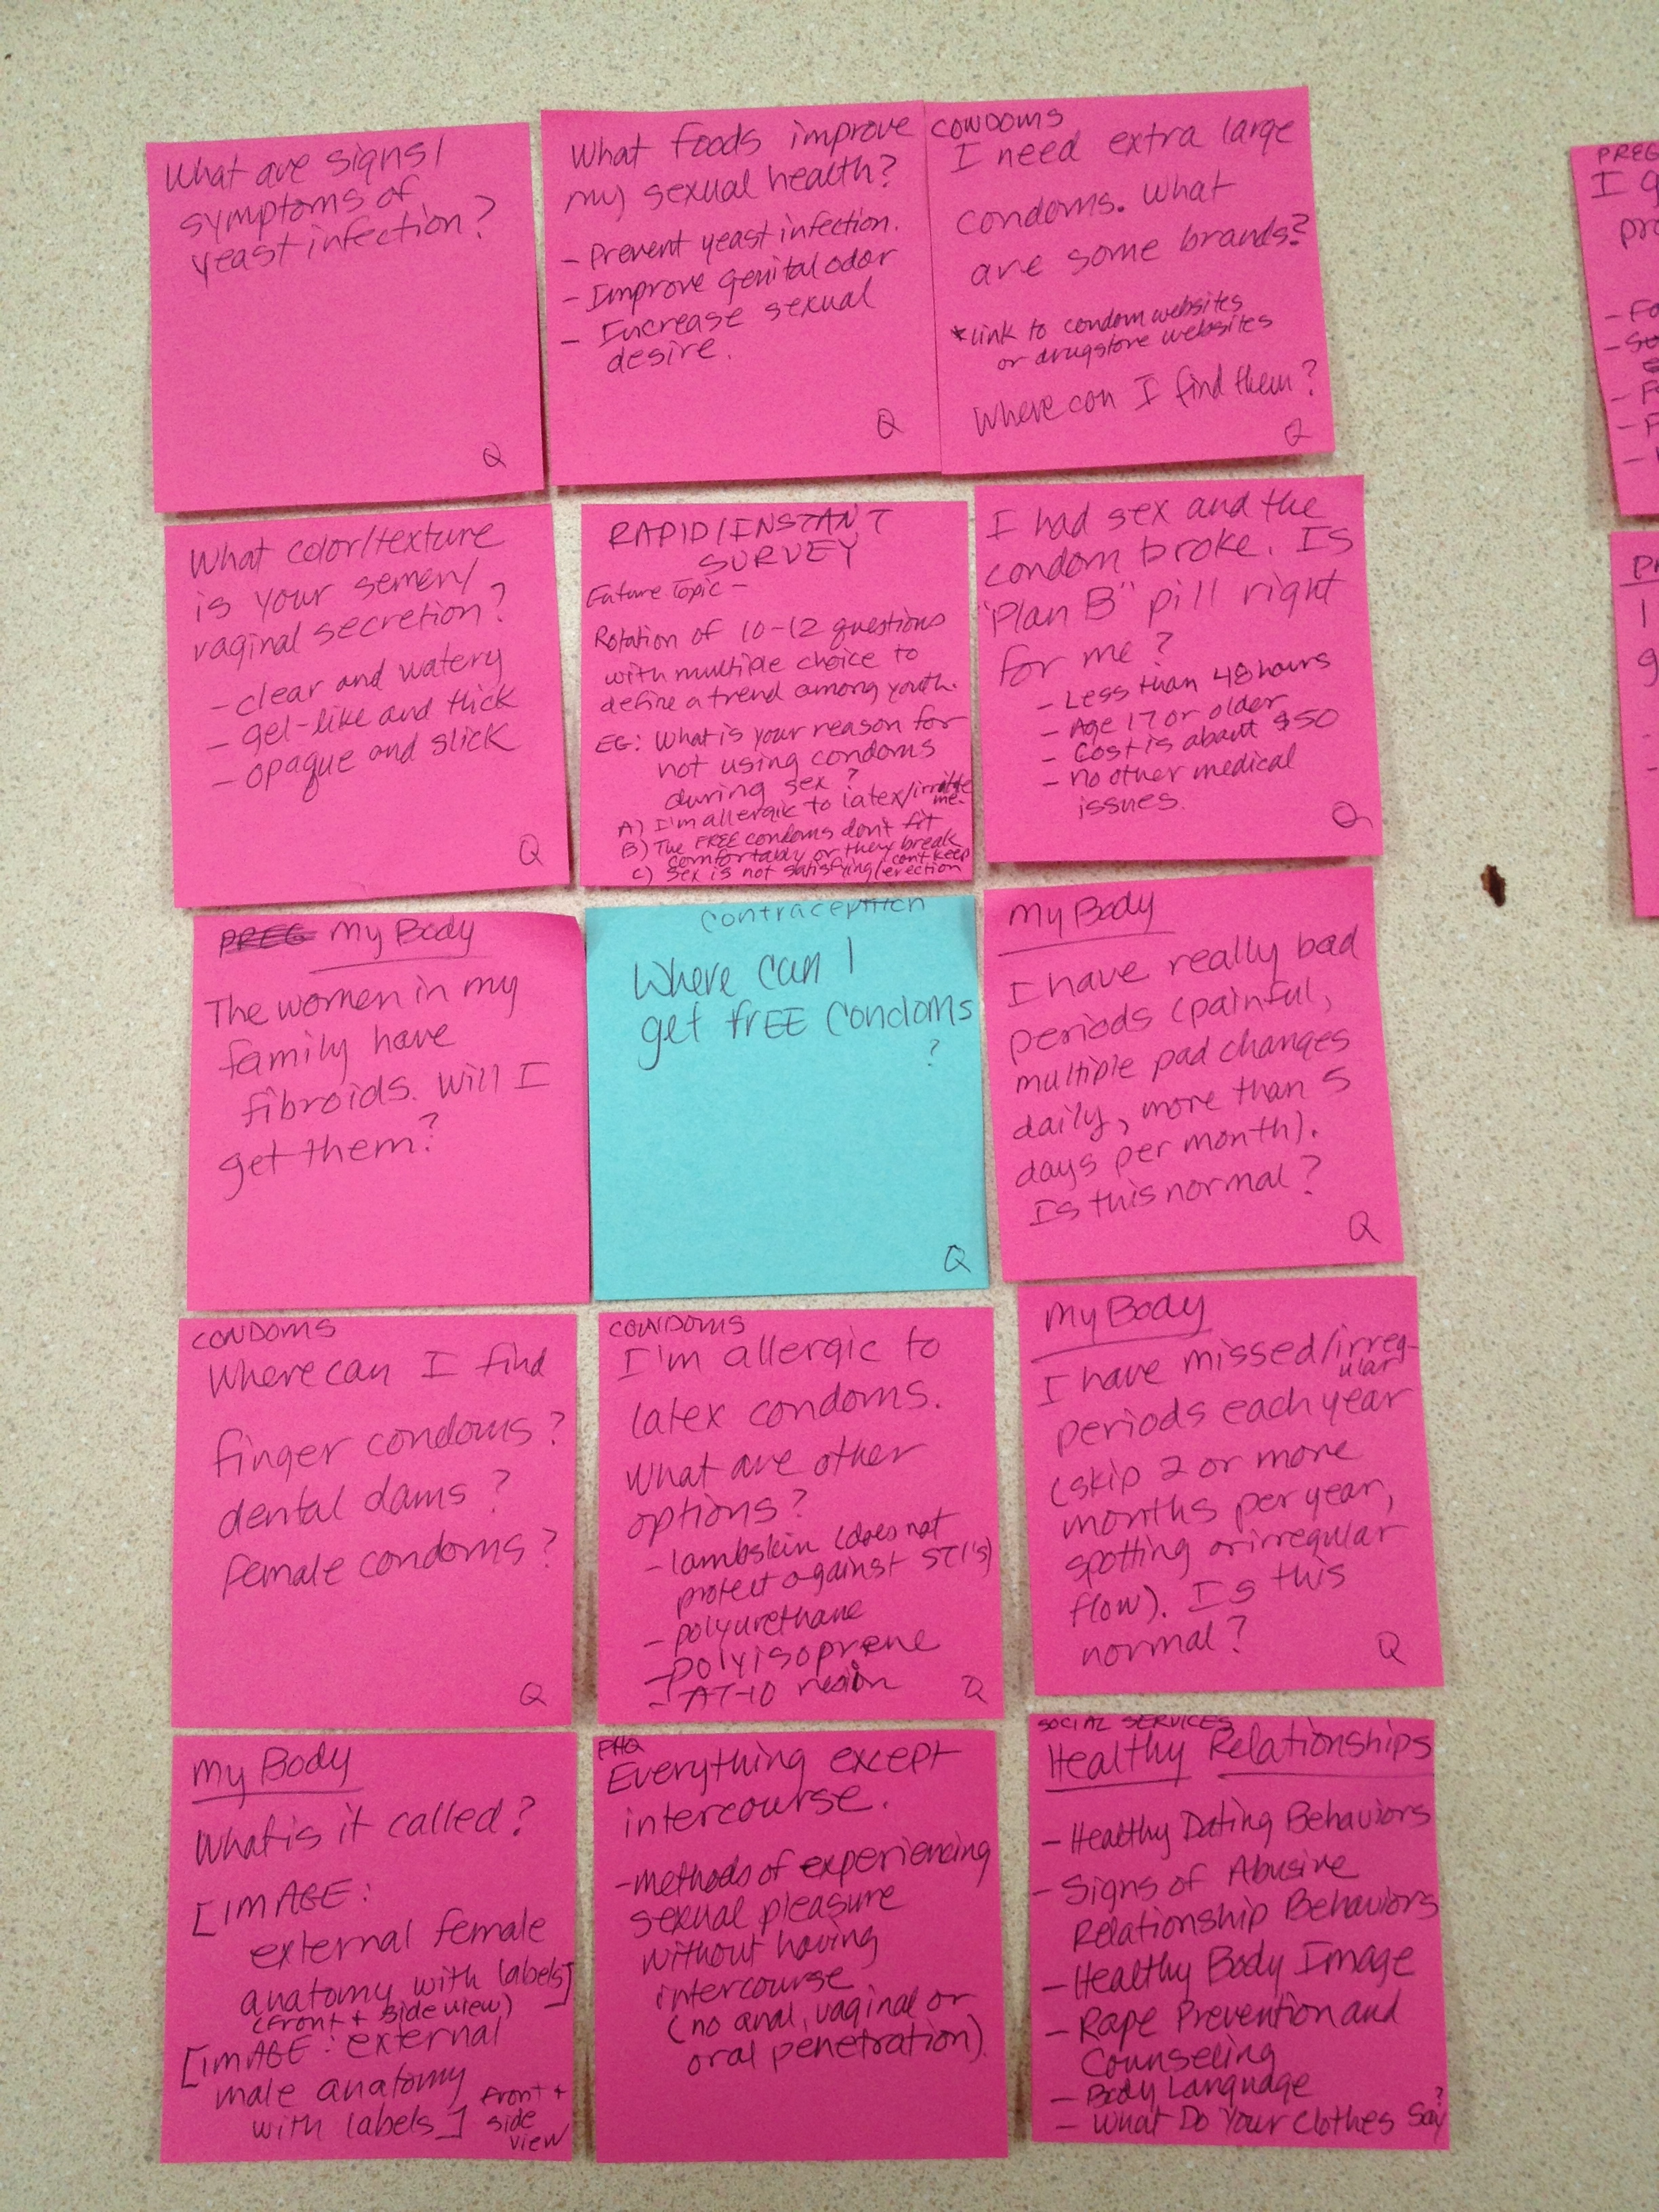 What are signs/
symptoms of
yeast infection?
Q
What foods improve
my sexual health?
- Prevent yeast infection.
- Improve genital odor
- Increase sexual
desire.
Q
CONDOMS
I need extra large
condoms. What
are some brands?
*link to condom websites
or drugstore websites
Where can I find them?
Q
What color/texture
is your semen/
vaginal secretion?
- clear and watery
- gel-like and thick
- opaque and slick
Q
RAPID/INSTANT
SURVEY
Future Topic -
Rotation of 10-12 questions
with multiple choice to
define a trend among youth.
EG: What is your reason for
not using condoms
during sex?
A) I'm allergic to latex/irritate
me.
B) The FREE condoms don't fit
comfortably or they break
C) Sex is not satisfying/can't keep
erection
I had sex and the
condom broke. Is
"Plan B" pill right
for me?
- Less than 48 hours
- Age 17 or older
- Cost is about $50
- no other medical
issues.
Q
PREG My Body
The women in my
family have
fibroids. Will I
get them?
contraception
Where can I
get frEE condoms
?
Q
My Body
I have really bad
periods (painful,
multiple pad changes
daily, more than 5
days per month).
Is this normal?
Q
CONDOMS
Where can I find
finger condoms?
dental dams?
female condoms?
Q
CONDOMS
I'm allergic to
latex condoms.
What are other
options?
- lambskin (does not
protect against STI's)
- polyurethane
- polyisoprene
- AT-10 resin
Q
My Body
I have missed/irreg-
ular
periods each year
(skip 2 or more
months per year,
spotting or irregular
flow). Is this
normal?
Q
My Body
What is it called?
[IMAGE:
external female
anatomy with labels]
(front + side view)
[IMAGE: external
male anatomy
with labels] front +
side
view
PHQ
Everything except
intercourse.
- methods of experiencing
sexual pleasure
without having
intercourse
(no anal, vaginal or
oral penetration).
SOCIAL SERVICES
Healthy Relationships
- Healthy Dating Behaviors
- Signs of Abusive
Relationship Behaviors
- Healthy Body Image
- Rape Prevention and
Counseling
- Body Language
- What Do Your Clothes Say?
PREG
I
- Fo